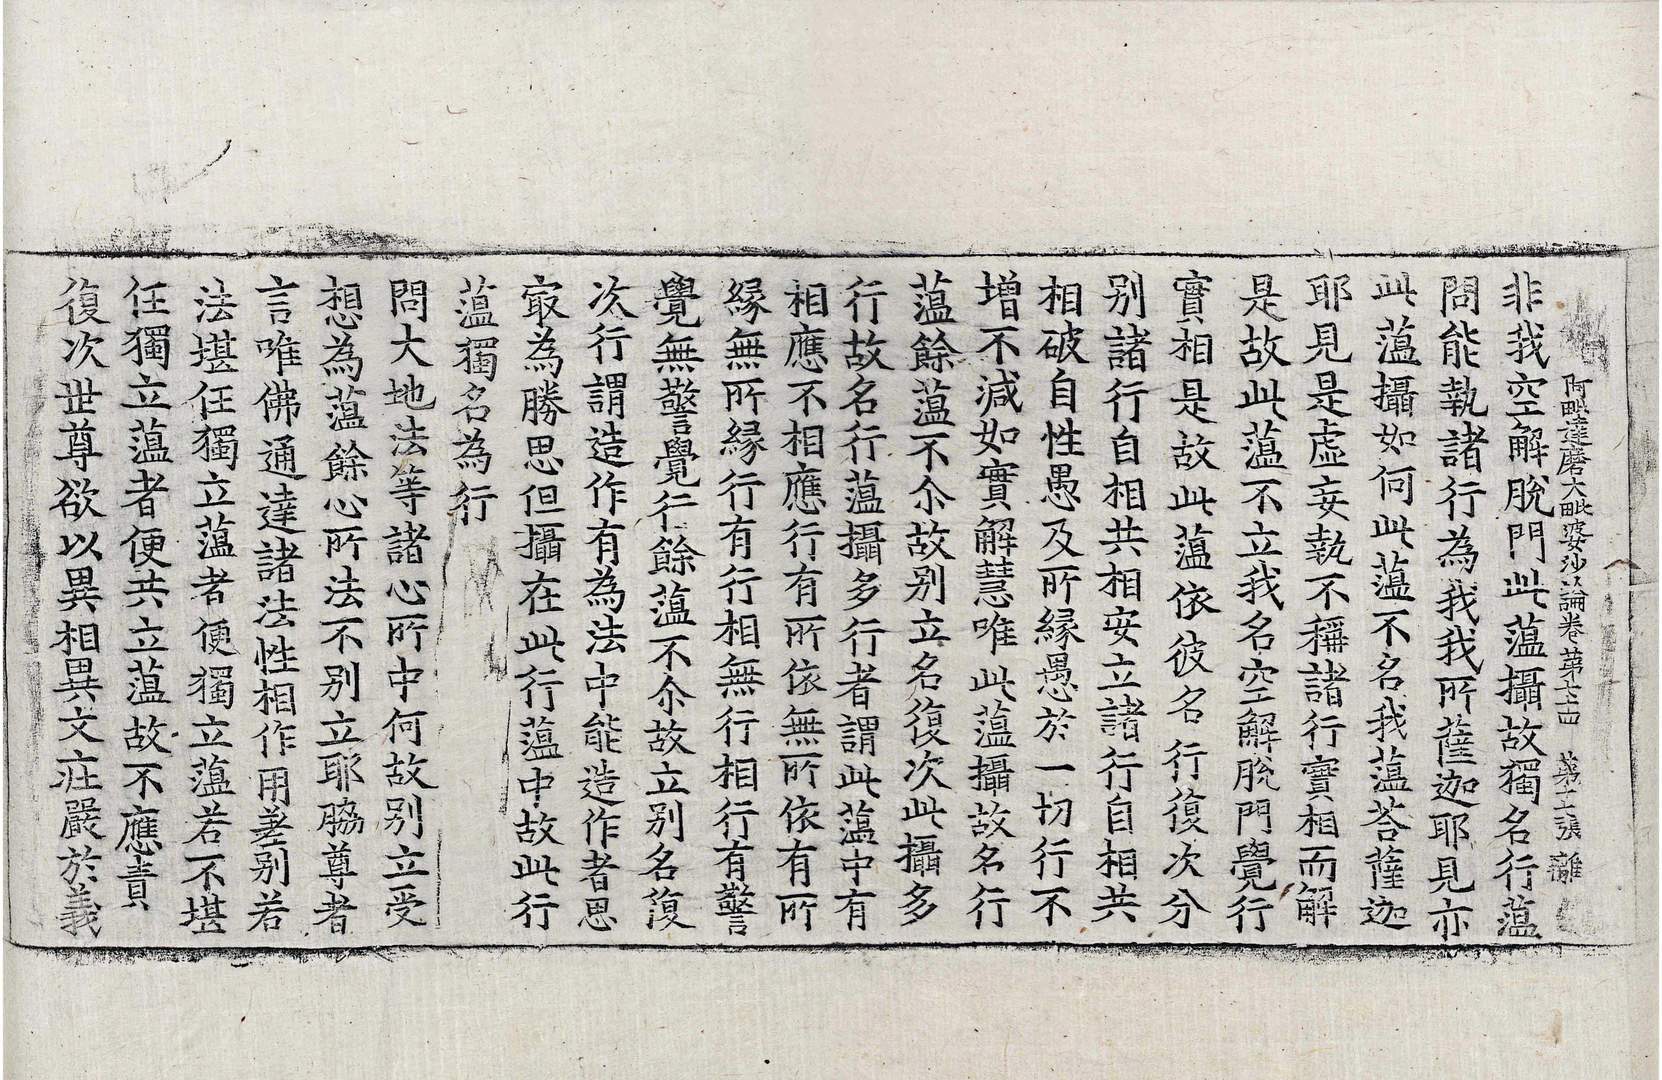 阿毗達磨大毗婆沙論卷第七十四 第十二張 離
非我空解脫門此蘊攝故獨名行蘊
問能執諸行為我我所薩迦耶見亦
此蘊攝如何此蘊不名我蘊荅薩迦
耶見是虛妄執不稱諸行實相而解
是故此蘊不立我名空解脫門覺行
實相是故此蘊依彼名行復次分
別諸行自相共相安立諸行自相共
相破自性愚及所緣愚於一切行不
增不減如實解慧唯此蘊攝故名行
蘊餘蘊不尒故別立名復次此攝多
行故名行蘊攝多行者謂此蘊中有
相應不相應行有所依無所依有所
緣無所緣行有行相無行相行有警
覺無警覺行餘蘊不尒故立別名復
次行謂造作有為法中能造作者思
㝡為勝思但攝在此行蘊中故此行
蘊獨名為行
問大地法等諸心所中何故別立受
想為蘊餘心所法不別立耶脇尊者
言唯佛通達諸法性相作用差別若
法堪任獨立蘊者便獨立蘊若不堪
任獨立蘊者便共立蘊故不應責
復次世尊欲以異相異文莊嚴於義